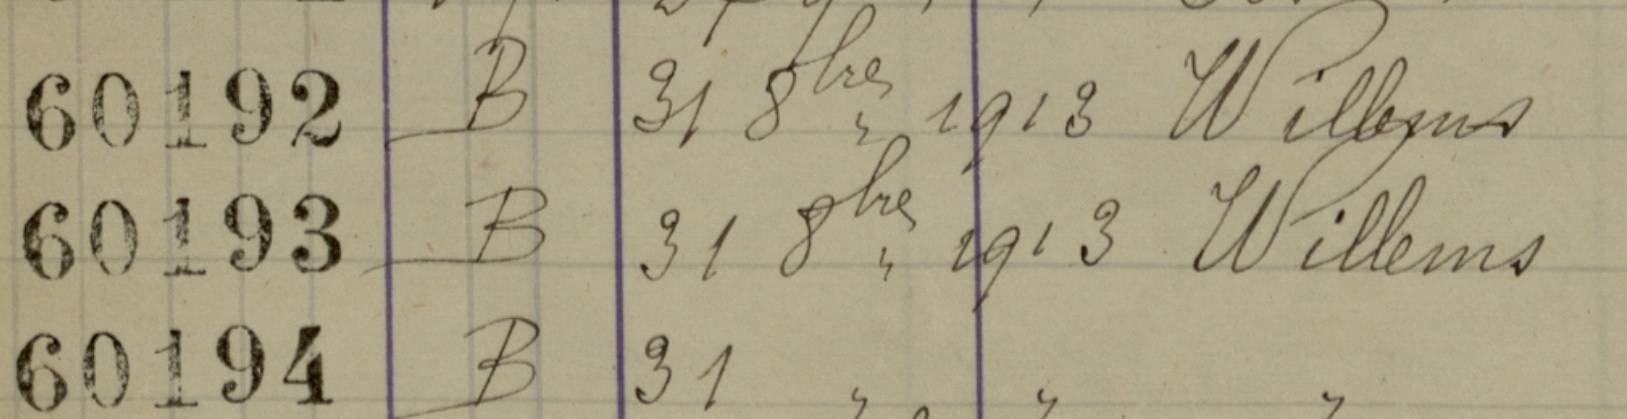 60192 B 31 8bre " 1913 Willems
60193 B 31 8bre " 1913 Willems
60194 B 31 " " "